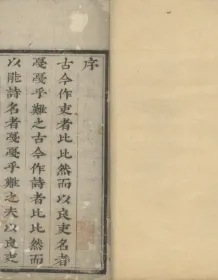 序
古今作吏者比比然而以良吏名者
戞戞乎難之古今作詩者比比然而
以能詩名者戞戞乎難之夫以良吏